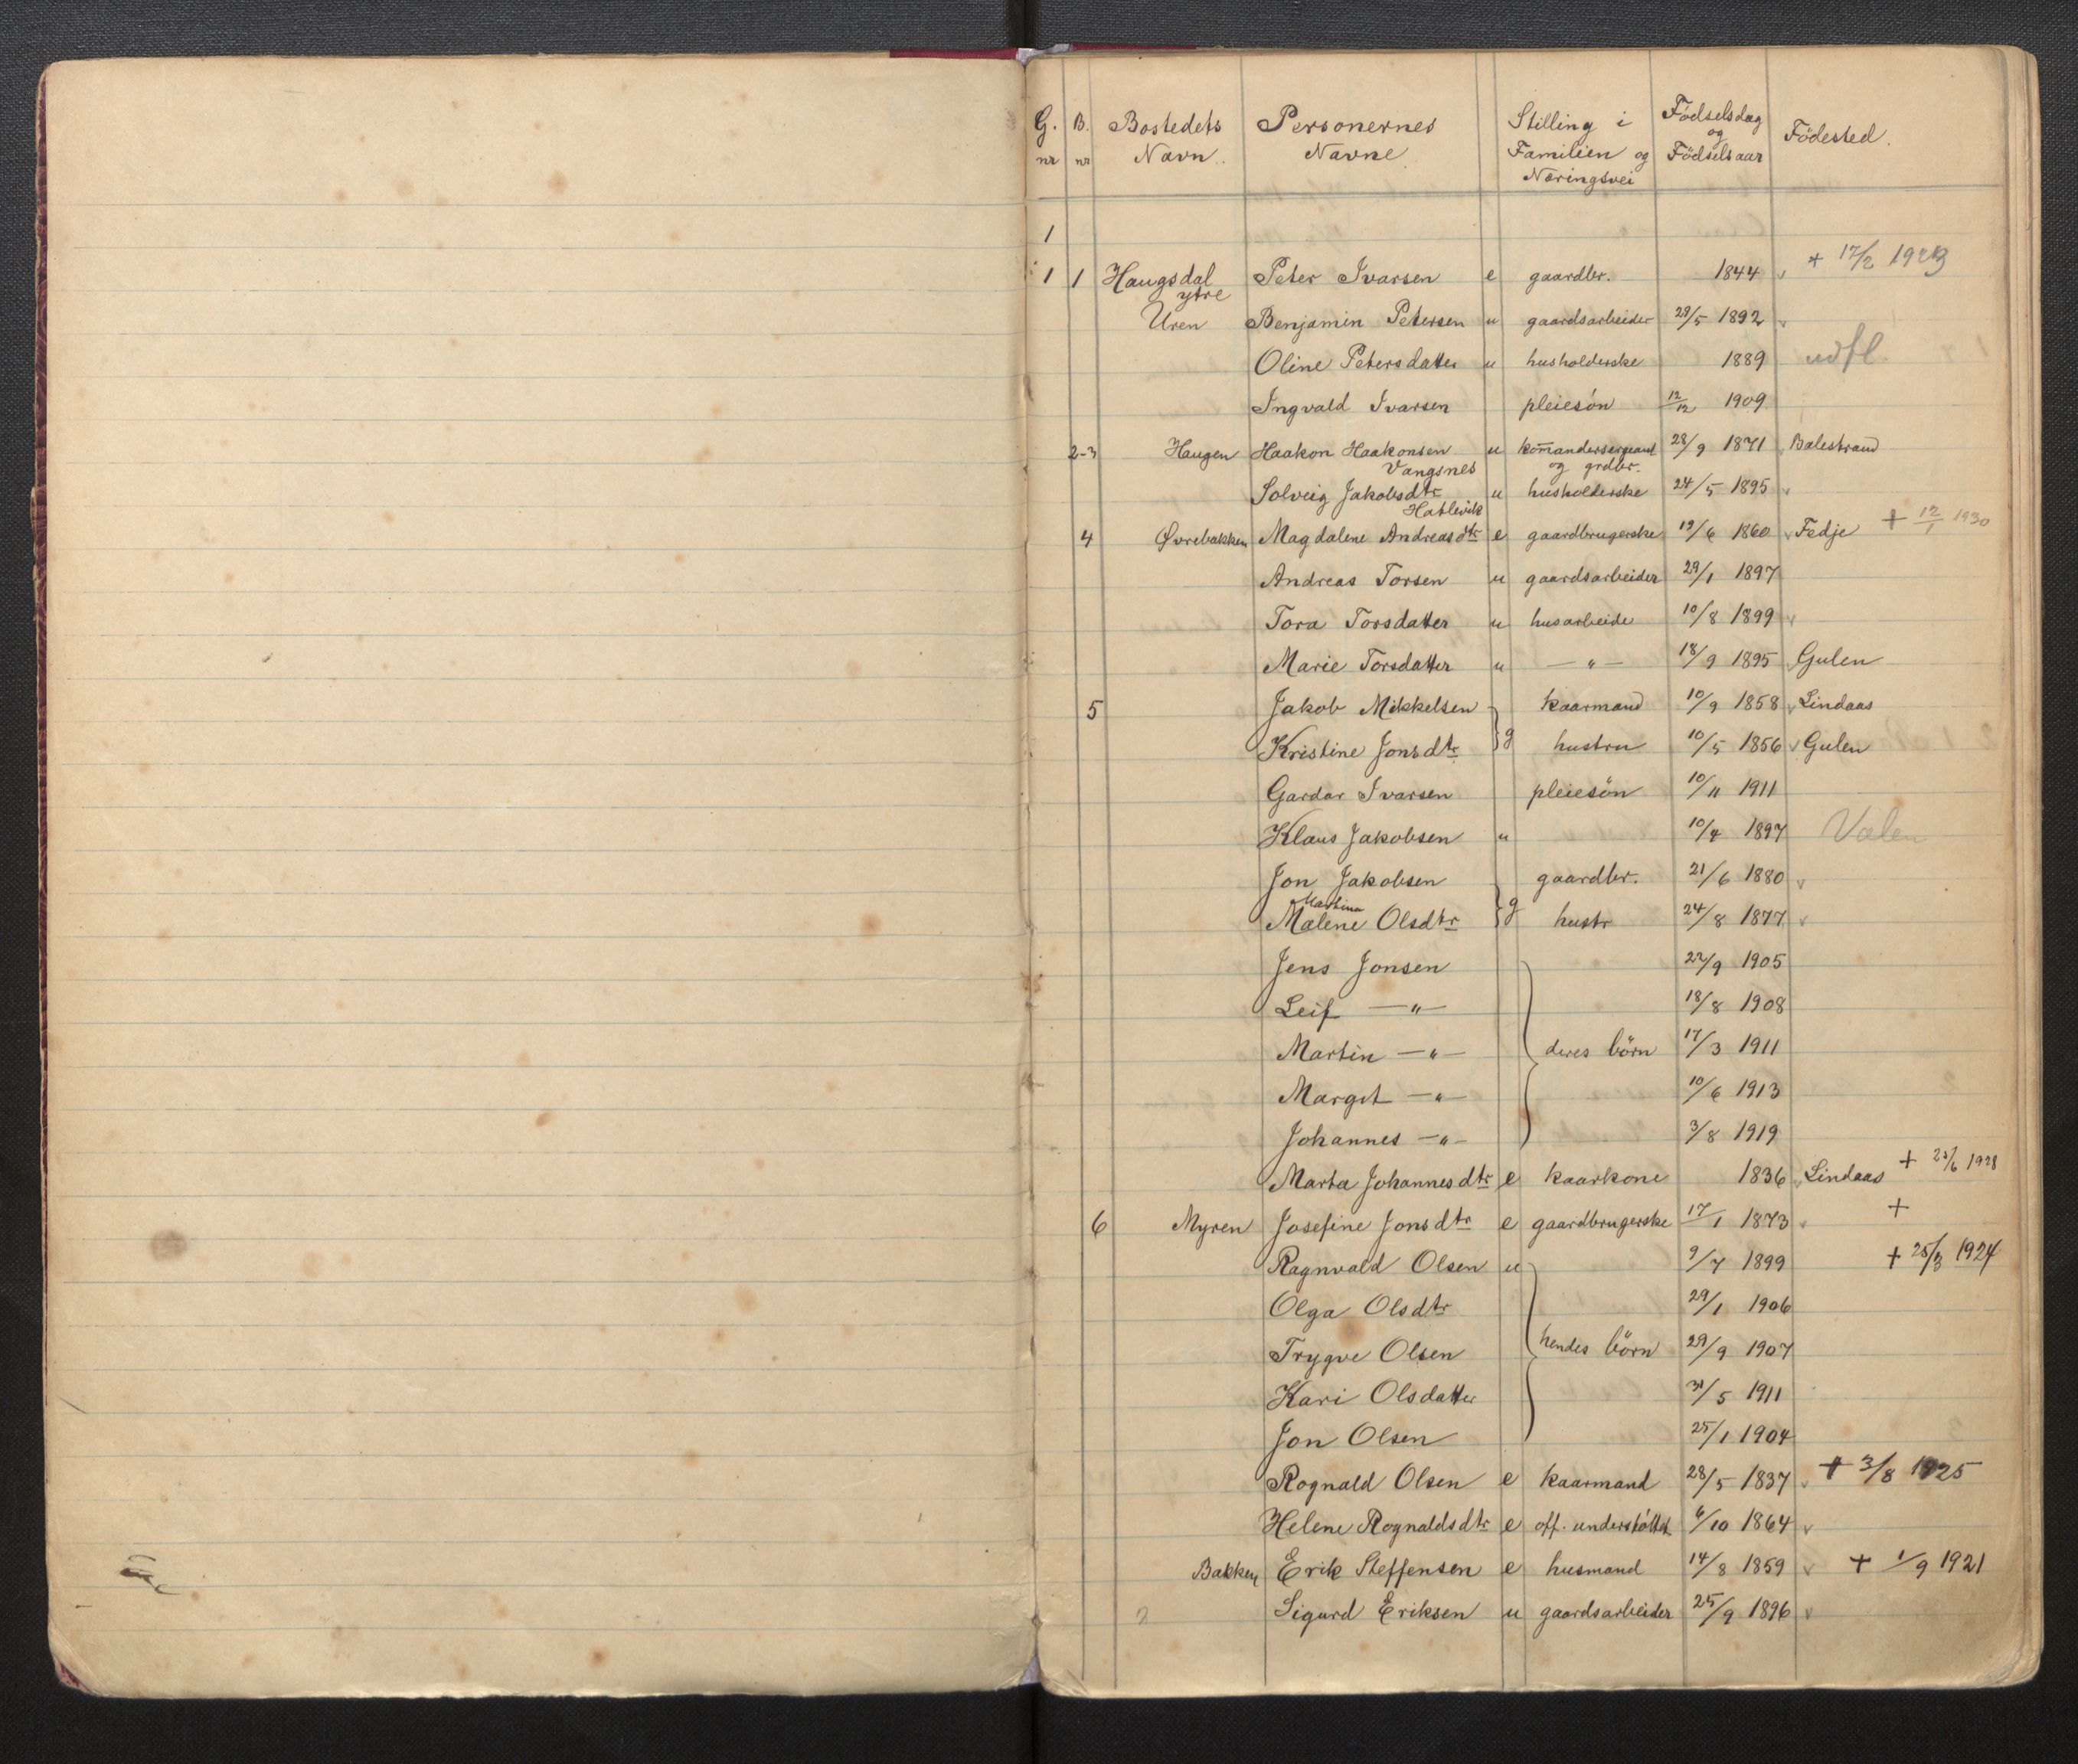 G. nr B. nr Bostedets Navn. Personernes Navne. Stilling i Familien og Næringsvei Födselsdag og Födselsaar Födested.
1
1 1 Haugsdal ytre Peter Ivarsen e gaardbr. 1844 + 17/2 1923
Uren Benjamin Petersen u gaardsarbeider 29/5 1892
Oline Petersdatter u husholderske 1889 udfl.
Ingvald Ivarsen pleiesön 12/12 1909
2-3 Haugen Haakon Haakonsen Vangsnes u kom̄andersergeant og grdbr. 28/9 1871 Balestrand
Solveig Jakobsdtr Hatlevik u husholderske 24/5 1895
4 Øvrebakken Magdalene Andreasdtr e gaardbrugerske 19/6 1860 Fedje + 12/1 1930
Andreas Torsen u gaardsarbeider 29/1 1897
Tora Torsdatter u husarbeide 10/8 1899
Marie Torsdatter u — " — 18/9 1895 Gulen
5 Jakob Mikkelsen kaarmand 10/9 1858 Lindaas
Kristine Jonsdtr } g hustru 10/5 1856 Gulen
Gardar Ivarsen pleiesön 10/11 1911
Klaus Jakobsen u 10/4 1897 Valen
Jon Jakobsen gaardbr. 21/6 1880
Martina
Malene Olsdtr } g hustr 24/8 1877
Jens Jonsen 22/9 1905
Leif — " — 18/8 1908
Martin — " — deres börn 17/3 1911
Margit — " — 10/6 1913
Johannes — " — 3/8 1919
Marta Johannesdtr e kaarkone 1836 Lindaas + 1928
6 Myren Josefine Jonsdtr e gaardbrugerske 17/1 1873 +
Ragnvald Olsen u 9/7 1899 + 25/3 1924
Olga Olsdtr 29/1 1906
Trygve Olsen hendes börn 29/9 1907
Kari Olsdatter 31/5 1911
Jon Olsen 25/1 1904
Rognald Olsen e kaarmand 28/5 1837 + 3/8 1925
Helene Rognaldsdtr e off. understöttet 6/10 1864
Bakken Erik Steffensen e husmand 14/8 1859 + 1/9 1921
Sigurd Eriksen u gaardsarbeider 25/9 1896